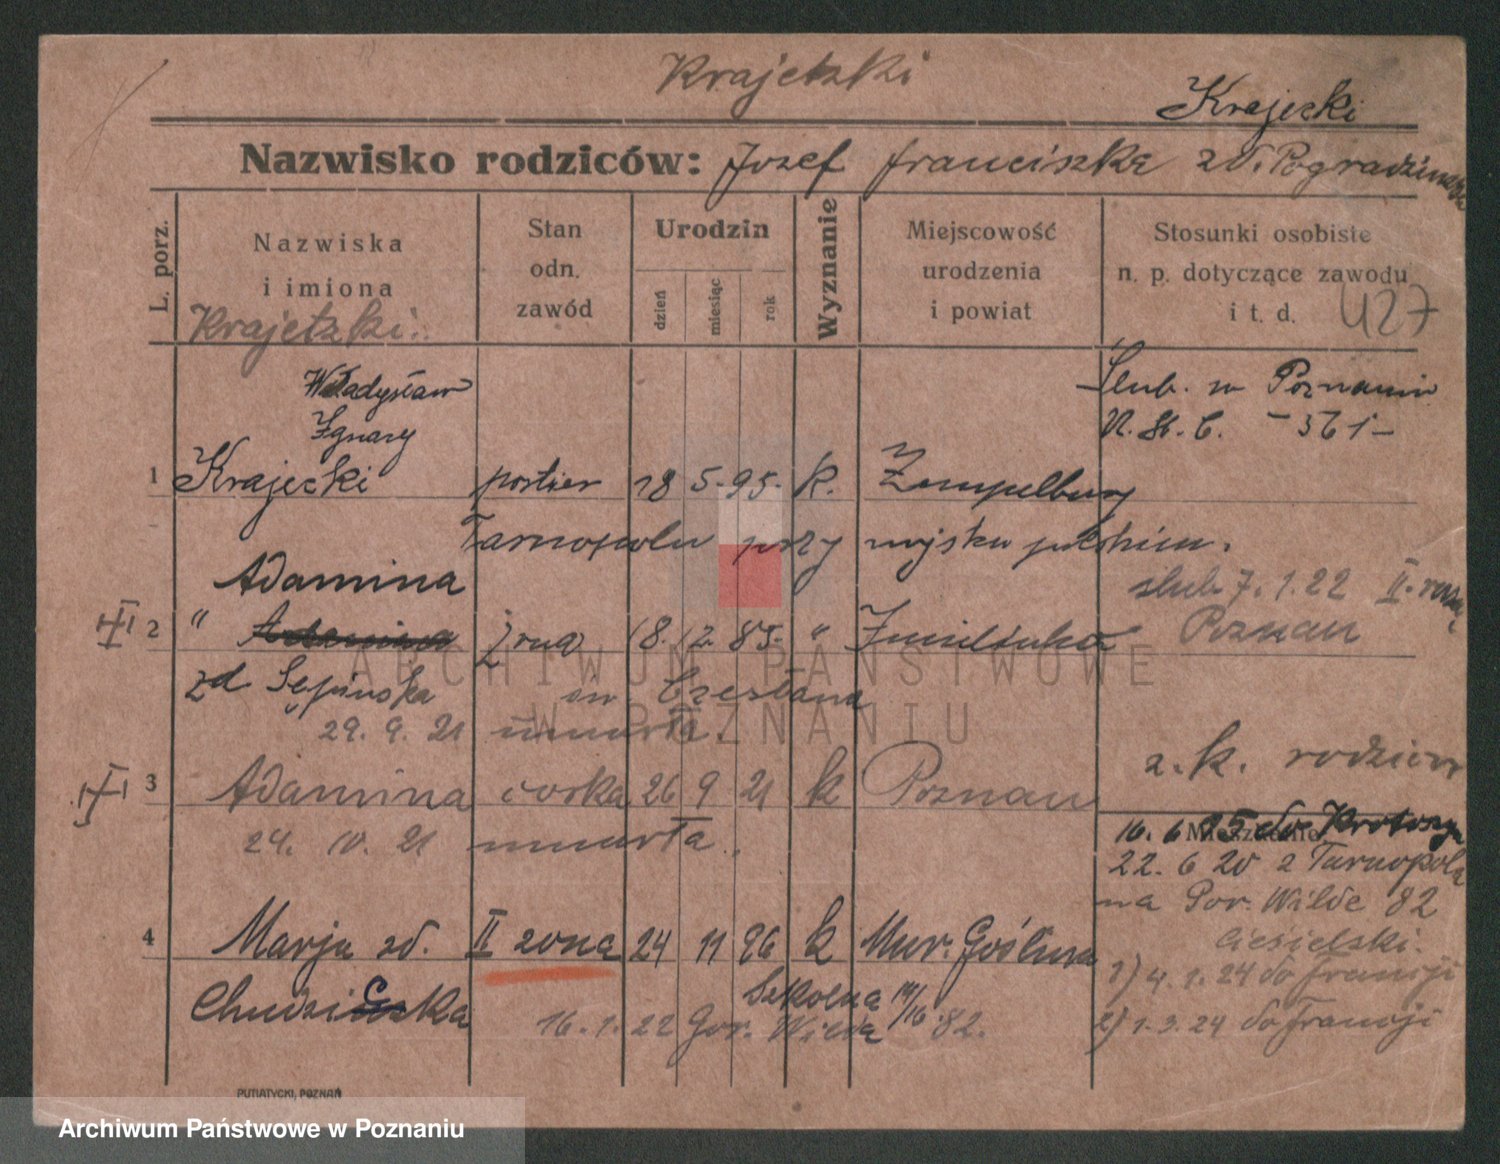 Krajetzki
Krajecki
Nazwisko rodziców: Jozef Franciszka zd. Pogradzinska
L. porz.
Nazwiska
i imiona
Krajetzki
Stan
odn.
zawód
Urodzin
dzień
miesiąc
rok
Wyznanie
Miejscowość
urodzenia
i powiat
Stosunki osobiste
n. p. dotyczące zawodu
i t. d.
427
Władysław
Ignacy
1 Krajecki portier 18 5. 95. k. Zempelburg
Ślub. w Poznaniu
N. St. C. - 361 -
Tarnopolu przy wojsku polskiem.
Adamina
2 " żona 18. 12. 85. "
ślub 7. 1. 22
Poznan
zd
św. Czesława
29. 9. 21 umarła.
3 Adamina córka 26 9 21 k Poznan
z. k. rodziców
24. 10. 21 umarła.
Mieszkanie
16. 6 25 do Krotoszyn
22. 6 20 z Tarnopola
na Gór. Wilde 82
Ciesielski.
4 Marja zd. II zona 24 11 96 k Mur. Goślina
1) 4. 1. 24 do Francji
Szkolna
16. 1. 22 Gór. Wilda 82.
2) 1. 3. 24 do Francji
PUTIATYCKI, POZNAŃ
ARCHIWUM PAŃSTWOWE
W POZNANIU
Archiwum Państwowe w Poznaniu